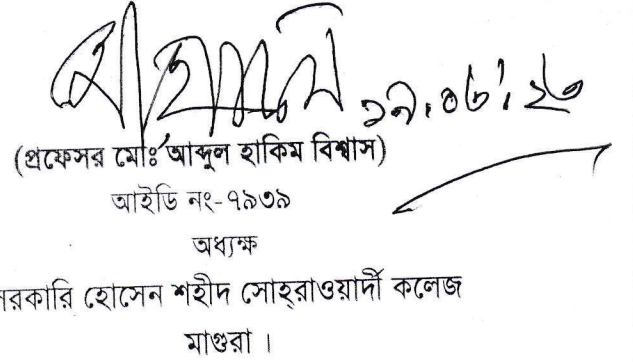 ১৯.০৮.২৩
(প্রফেসর মোঃ আব্দুল হাকিম বিশ্বাস)
আইডি নং-৭৯৩৯
অধ্যক্ষ
সরকারি হোসেন শহীদ সোহ্‌রাওয়ার্দী কলেজ
মাগুরা।